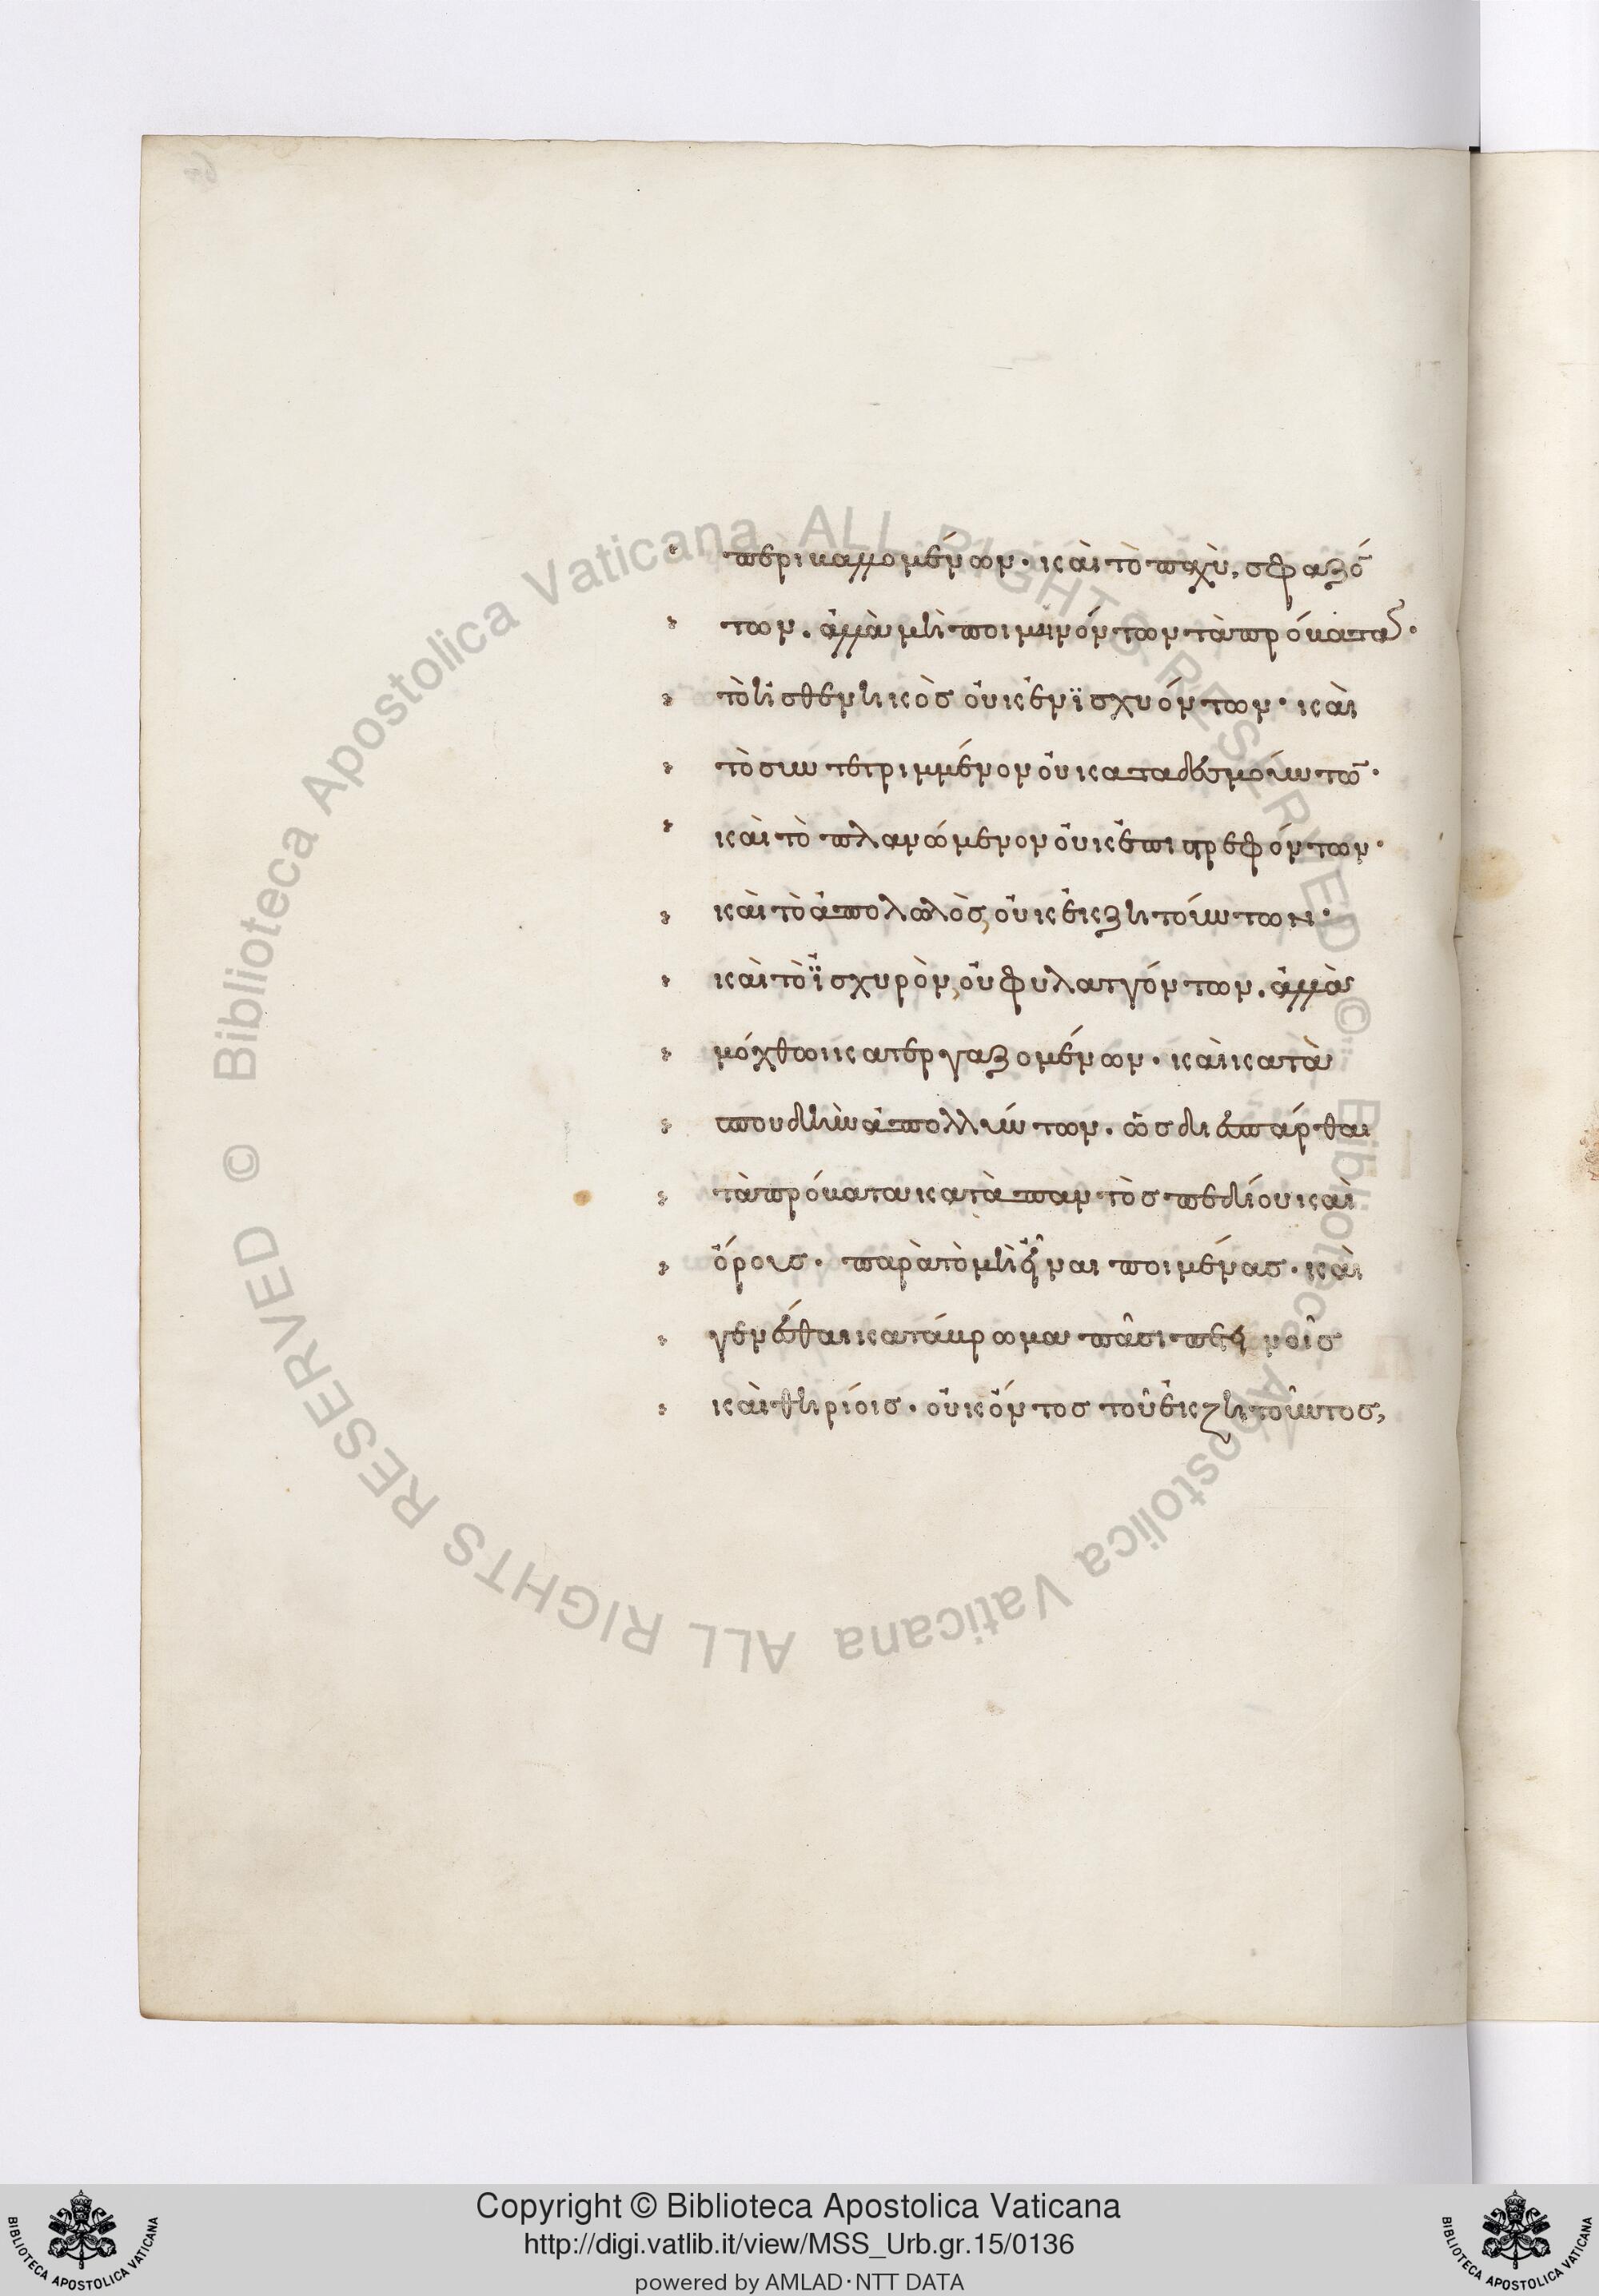 περιβαλλομένων· καὶ τὸ παχὺ, σφαζό
των. ἀλλὰ μὴ ποιμαινόντων τὰ πρόβατα·
τὸ ἠσθενηκὸς οὐκ ἐνϊσχυόντων· καὶ
τὸ συντετριμμένον οὐ καταδεσμούντω̄·
καὶ τὸ πλανώμενον οὐκ ἐπιστρεφόντων·
καὶ τὸ ἀπολωλὸς, οὐκ ἐκζητούντων·
καὶ τὸ ἰ̈σχυρὸν, οὐ φυλαττόντων. ἀλλὰ
μόχθωι κατεργαζομένων· καὶ κατὰ
σπουδὴν ἀπολλύντων. ὡς διεσπάρθαι
τὰ πρόβατα κατὰ παντὸς πεδίου καὶ
ὄρους· παρὰ τὸ μὴ εἶναι ποιμένας· καὶ
γενέσθαι κατάβρωμα πᾶσι πετεινοῖς
καὶ θηρίοις· οὐκ ὄντος τοῦ ἐκζητοῦντος,
Copyright © Biblioteca Apostolica Vaticana
http://digi.vatlib.it/view/MSS_Urb.gr.15/0136
powered by AMLAD·NTT DATA
© Biblioteca Apostolica Vaticana ALL RIGHTS RESERVED
© Biblioteca Apostolica Vaticana ALL RIGHTS RESERVED
BIBLIOTECA APOSTOLICA VATICANA
BIBLIOTECA APOSTOLICA VATICANA